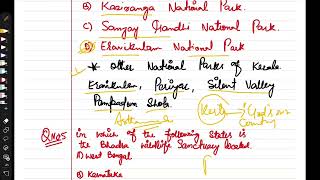 B) Kaziranga National Park.
C) Sanjay Gandhi National Park.
D) Eravikulam National Park
* Other National Parks of Kerala
Eravikulam, Periyar, Silent Valley
Pampadum Shola.
Kerala God's own
Country
Q No 5 in which of the following States is
the Bhadra wildlife Sanctuary located.
A) West Bengal
B) Karnataka